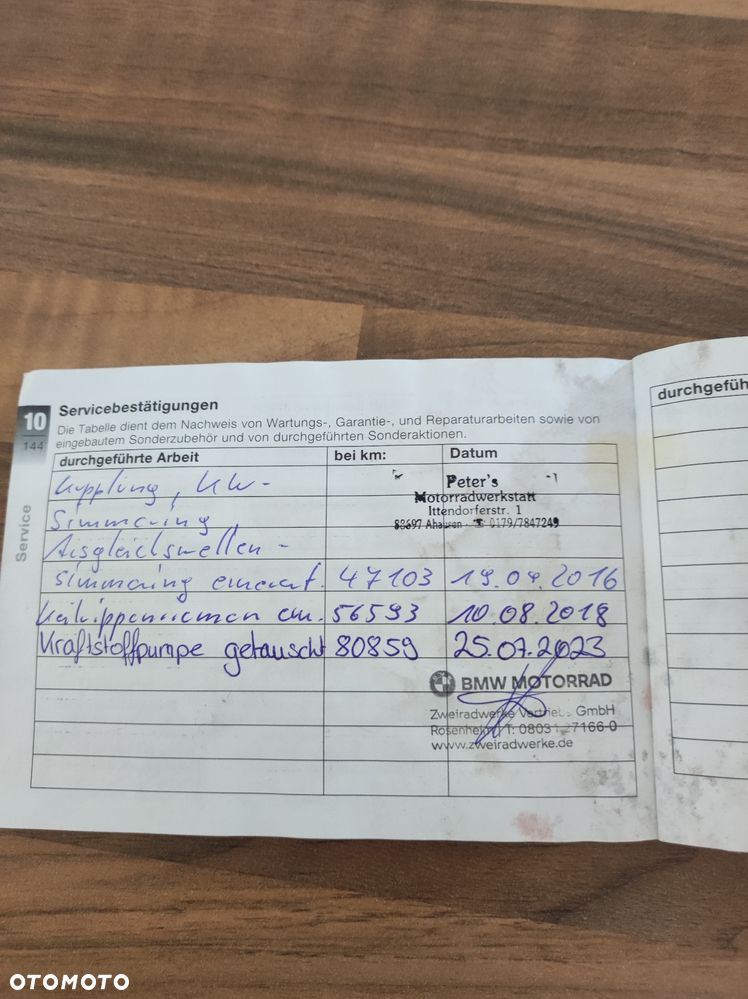 10
144
Service
Servicebestätigungen
Die Tabelle dient dem Nachweis von Wartungs-, Garantie-, und Reparaturarbeiten sowie von
eingebautem Sonderzubehör und von durchgeführten Sonderaktionen.
durchgeführte Arbeit bei km: Datum
Kupplung, KW-
Simmering
Ausgleichswellen-
simmering erneuert. 47103 19.04.2016
Peter's
Motorradwerkstatt
Ittendorferstr. 1
88697 Ahausen - ☎ 0179/7847249
Keilrippenriemen ern. 56593 10.08.2018
Kraftstoffpumpe getauscht 80859 25.07.2023
BMW MOTORRAD
Zweiradwerke Vertriebs GmbH
Rosenheim T: 08031 27166-0
www.zweiradwerke.de
durchgefüh
OTOMOTO